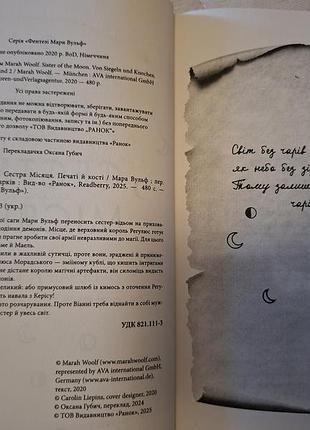 Серія «Фентезі Мари Вульф»
не опубліковано 2020 р. BoD, Німеччина
Marah Woolf. Sister of the Moon. Von Siegeln und Knochen,
nd 2 / Marah Woolf. — München : AVA international GmbH
oren-und-Verlagsagentur, 2020 — 480 p.
Усі права застережені
дання не можна відтворювати, зберігати, завантажувати
о передавати в будь-якій формі й будь-яким способом
ним, фотокопіювання, запису та ін.) без попереднього
го дозволу «ТОВ Видавництво „РАНОК"»
ту є складовою частиною видавництва «Ранок»
Перекладачка Оксана Губич
Сестра Місяця. Печаті й кості / Мара Вульф ; пер.
арків : Вид-во «Ранок», Readberry, 2025. — 480 с. —
Вульф»).
3 (укр.)
ої саги Мари Вульф переносить сестер-відьом на прихова-
лодіння демонів. Місце, де верховний король Регулюс гот-
прагне зробити свої армії невразливими до магії. Для цього
ме й Маель.
или в жахливій сутичці, проте вони, зраджені й принижені
люса Мордаського — зміїному кублі, що кишить інтригами
ше дістане королю магічні артефакти, він сплюмдрує
еликий: або примусовий шлюб із кимось з оточення Регу-
ть навала з Керісу!
го розчарування. Проте Віанні треба віднайти в собі муж-
стрій й увесь світ.
УДК 821.111-3
© Marah Woolf (www.marahwoolf.com),
represented by AVA international GmbH,
Germany (www.ava-international.de),
текст, 2020
© Carolin Liepins, cover designer, 2020
© Оксана Губич, переклад, 2024
© ТОВ Видавництво «Ранок», 2025
Світ без чарів
як небо без зі
Тому залиш
чарі